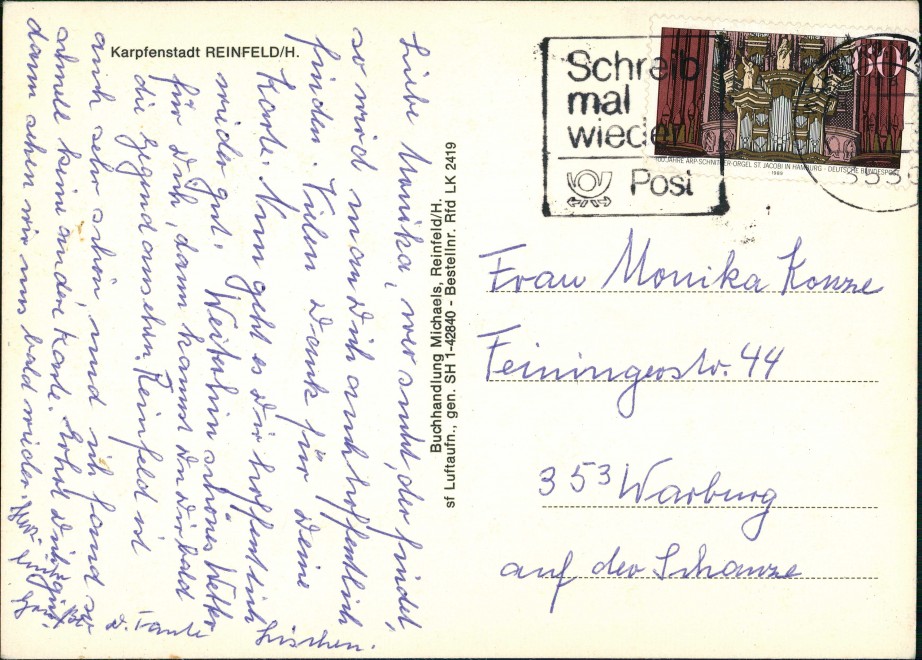 Karpfenstadt REINFELD/H.
Liebe Monika, wer sucht, der findet,
so wird man Dich auch hoffentlich
finden. Vielen Dank für Deine
Karte. Nun geht es Dir hoffentlich
wieder gut. Weiterhin schönes Wetter
für Dich, dann kannst Du Dir bald
die Gegend ansehn. Reinfeld ist
auch sehr schön und ich fand so
schnell keine andere Karte. Erhol Dich gut
dann sehen wir uns bald wieder. Herz-
D. Tante Lieschen.
Buchhandlung Michaels, Reinfeld/H.
sf Luftaufn., gen. SH 1-42840 - Bestellnr. Rfd LK 2419
Schreib
mal
wieder
Post
60
300 JAHRE ARP-SCHNITGER-ORGEL ST. JACOBI IN HAMBURG · DEUTSCHE BUNDESPOST
1989
Frau Monika Konze
Feiningerstr. 44
353 Warburg
auf der Schanze